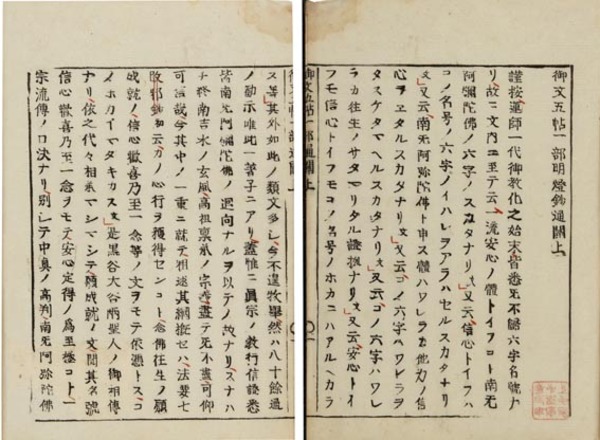 御文五帖一部明燈鈔通關上
謹按蓮師一代御教化之始末皆悉无不膽六字名號ナ
リ故ニ文内ニ至テ云一流安心ノ體トイフコト南无
阿彌陀佛ノ六字ノスカタナリ又云信心トイフハ
コノ名号ノ六字ノイハレヲアラハセルスカタナリ
又云南无阿弥陀佛ト申ス體ハワレラカ他力ノ信
心ヲエタルスカタナリ又云コノ六字ハワレラヲ
タスケタマヘルスカタナリ又云コノ六字ハワレ
ラカ往生ノサタマリタル證據ナリ又云安心トイ
フモ信心トイフモコノ名号ノホカニハアルヘカラ
ス等其外如此ノ類文多シ今不遑牧擧然ハ八十餘通
ノ勸示唯此一著子ニアリ蓋惟ニ眞宗ノ教行信證悉
皆南无阿彌陀佛ノ廻向ナルヲ以テノ故ナリスナハ
チ終南吉水ノ玄風高祖禀承ノ宗悉盡テ无不盡可仰
可信哉今其中ノ一重ニ就テ相述其綱擬セハ法要七
改邪鈔云カノ心行ヲ獲得センコト念佛往生ノ願
成就ノ信心歡喜乃至一念等ノ文ヲモテ依憑トスコ
ノホカイマタキカス是黒谷大谷兩聖人ノ御相傳
ナリ依之代々相承マシマシテ願成就ノ文聞其名號
信心歡喜乃至一念ヲモテ安心定得ノ爲至極コト一
宗流傳ノ口決ナリ別シテ中眞ノ高判南无阿弥陀佛